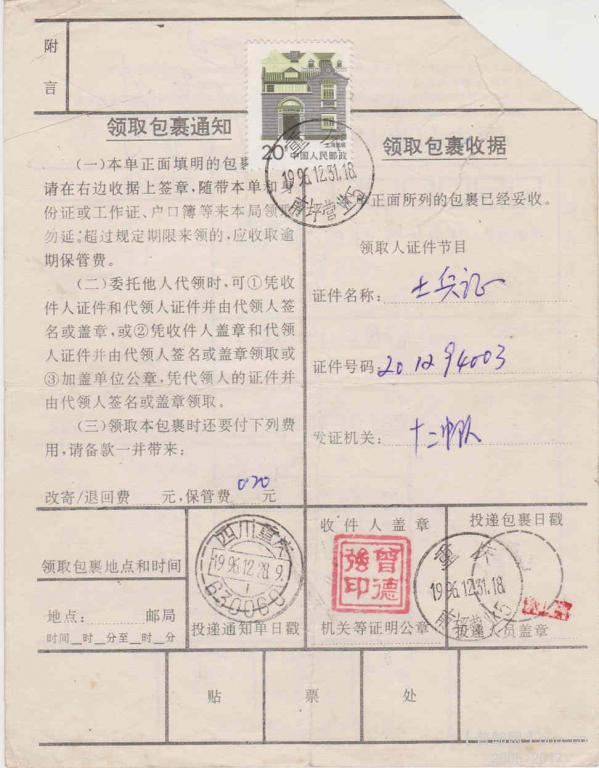 附
言
20
上海民居
中国人民邮政
领取包裹通知
(一)本单正面填明的包裹
请在右边收据上签章,随带本单和身
份证或工作证、户口簿等来本局领取
勿延。超过规定期限来领的,应收取逾
期保管费。
(二)委托他人代领时,可①凭收
件人证件和代领人证件并由代领人签
名或盖章,或②凭收件人盖章和代领
人证件并由代领人签名或盖章领取或
③加盖单位公章,凭代领人的证件并
由代领人签名或盖章领取。
(三)领取本包裹时还要付下列费
用,请备款一并带来:
改寄/退回费 元,保管费 0.20 元
领取包裹收据
1996.12.31.18
正面所列的包裹已经妥收。
领取人证件节目
证件名称: 士兵证
证件号码 201294003
发证机关: 十二中队
领取包裹地点和时间
地点: 邮局
时间 时 分至 时 分
四川重庆
1996.12.28.9
630060
投递通知单日戳
收件人盖章
曾德
强印
机关等证明公章
投递包裹日戳
1996.12.31.18
投递人员盖章
贴 票 处
2006-2012